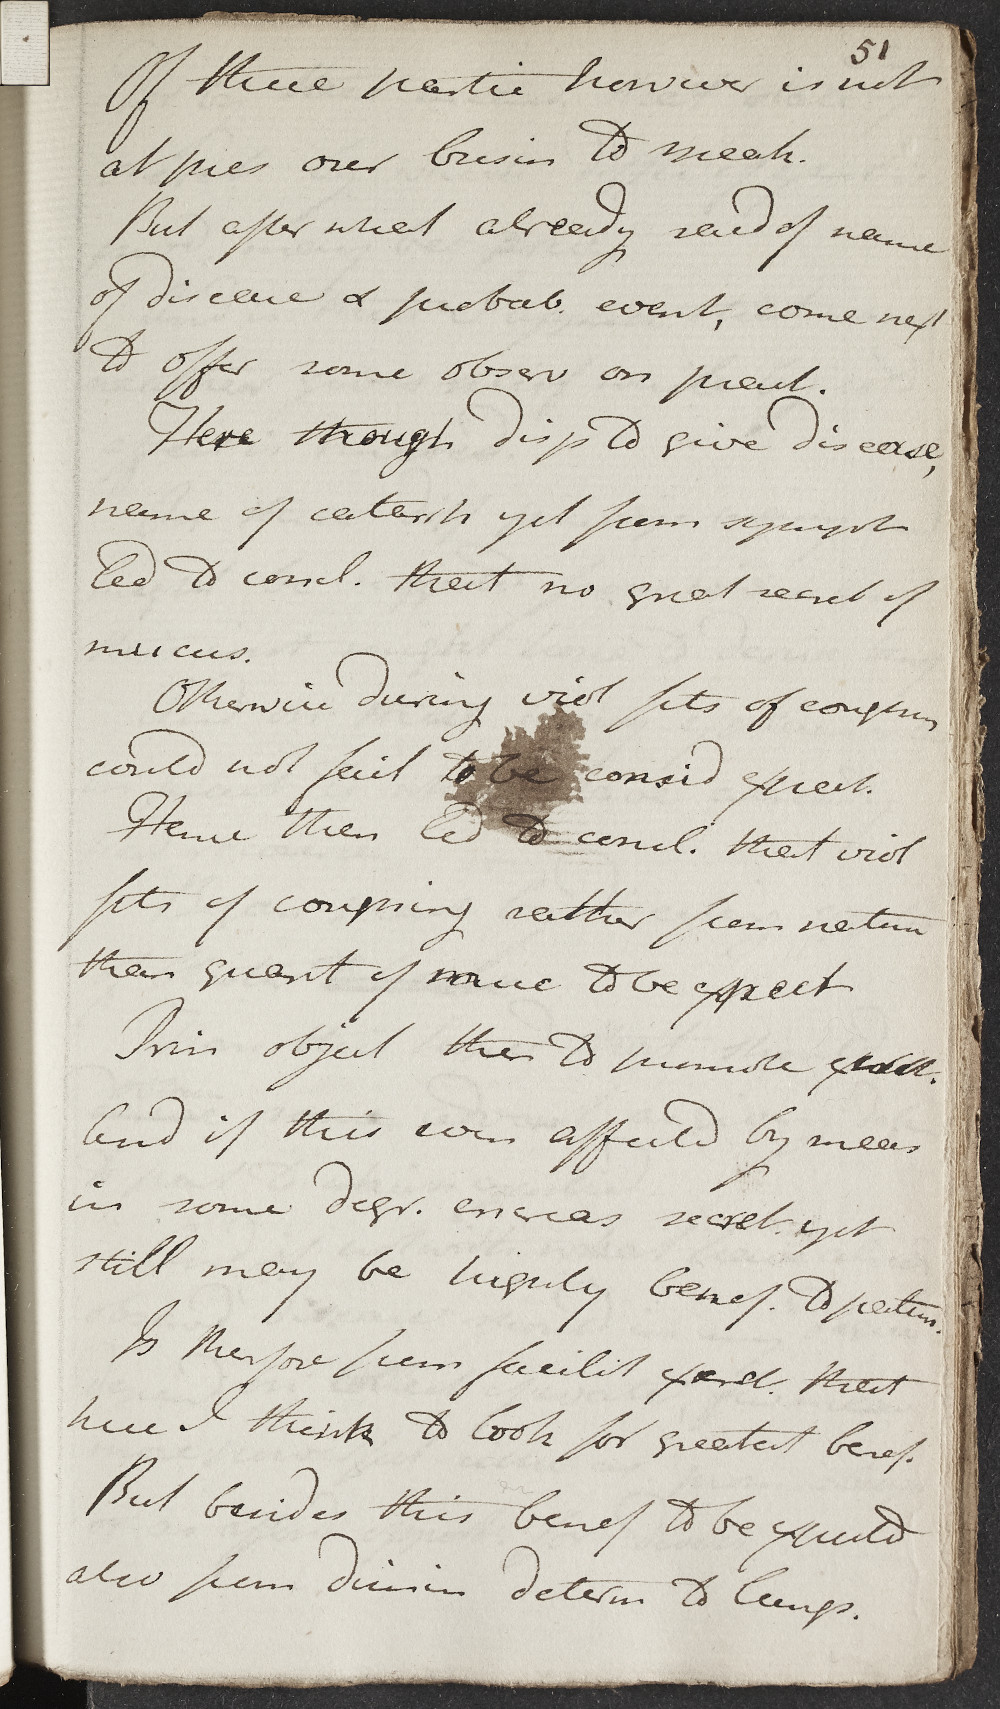 51
Of these partic however is not
at pres our busin to speak.
But after what already said of name
of disease & probab. event, come next
to offer some observ on pract.
Here though disp to give disease,
name of catarrh yet from sympt
led to concl. that no great secret of
mucus.
Otherwise during viol fits of coughing
could not fail to be consid expect.
Hence then led to concl. that viol
fits of coughing rather from nature
than quant of mouc to be expect
Prin object then to promote expect.
And if this even affected by means
in some degr. encreas secret. yet
still may be highly benef. to patien.
Is therfore from facilit expect. that
here I think to look for greatest benef.
But besides this benef to be expected
also from dimin determ to lungs.